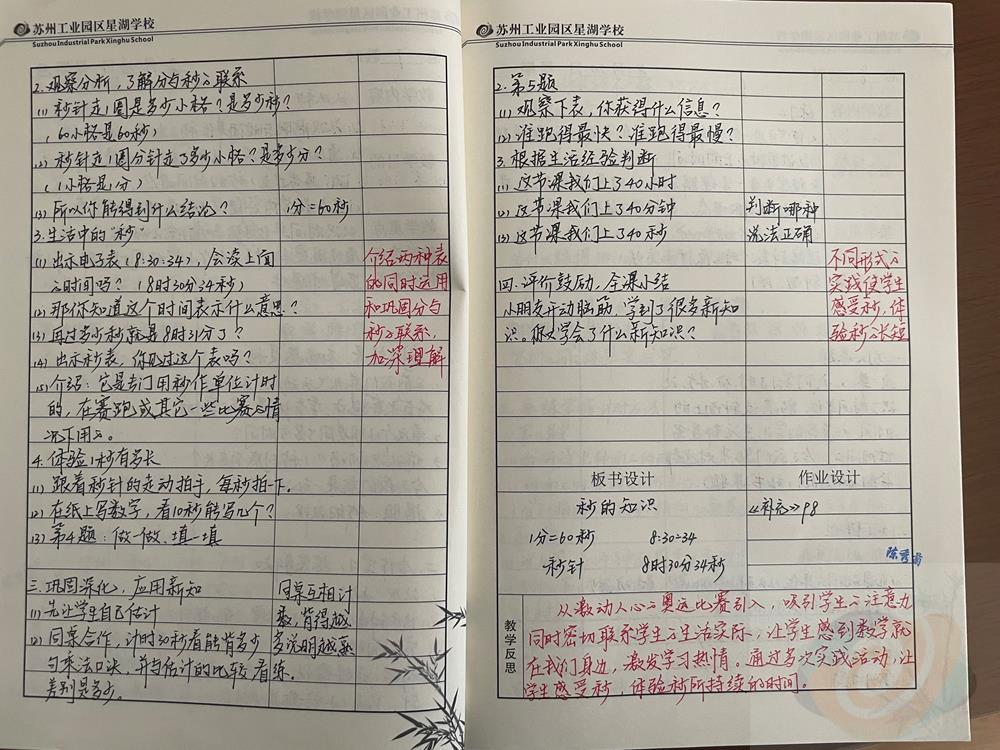 苏州工业园区星湖学校
Suzhou Industrial Park Xinghu School
2.观察分析,了解分与秒之联系
(1)秒针走1圈是多少小格?是多少秒?
(60小格是60秒)
(2)秒针走1圈分针走了多少小格?是多少分?
(1小格是1分)
(3)所以你能得到什么结论?
1分=60秒
3.生活中的"秒"
(1)出示电子表(8:30:34),会读上面
之时间吗?(8时30分34秒)
(2)那你知道这个时间表示什么意思?
(3)再过多少秒就是8时31分了?
(4)出示秒表,你见过这个表吗?
(5)介绍:它是专门用秒作单位计时
的,在赛跑或其它一些比赛之情
况下用之。
介绍两种表
的同时运用
和巩固分与
秒之联系,
加深理解
4.体验1秒有多长
(1)跟着秒针的走动拍手,每秒拍一下.
(2)在纸上写数字,看10秒能写几个?
(3)第4题:做一做、填一填
三.巩固深化,应用新知
(1)先让学生自己估计
(2)同桌合作,计时30秒看能背多少
句乘法口决,并与估计的比较看
差别是多少。
同桌互相计
数,背得越
多说明越熟
练.
苏州工业园区星湖学校
Suzhou Industrial Park Xinghu School
2.第5题
(1)观察下表,你获得什么信息?
(2)谁跑得最快?谁跑得最慢?
3.根据生活经验判断
(1)这节课我们上了40小时
(2)这节课我们上了40分钟
(3)这节课我们上了40秒
判断哪种
说法正确
四.评价鼓励,全课小结
小朋友开动脑筋,学到了很多新知
识。你又学会了什么新知识?
不同形式之
实践使学生
感受秒,体
验秒之长短
板书设计
作业设计
秒的知识
1分=60秒 8:30:34
秒针 8时30分34秒
《补充》P8
陈秀
教学反思
从激动人心之奥运比赛引入,吸引学生之注意力
同时密切联系学生之生活实际,让学生感到数学就
在我们身边,激发学习热情。通过多次实践活动,让
学生感受秒,体验秒所持续的时间。